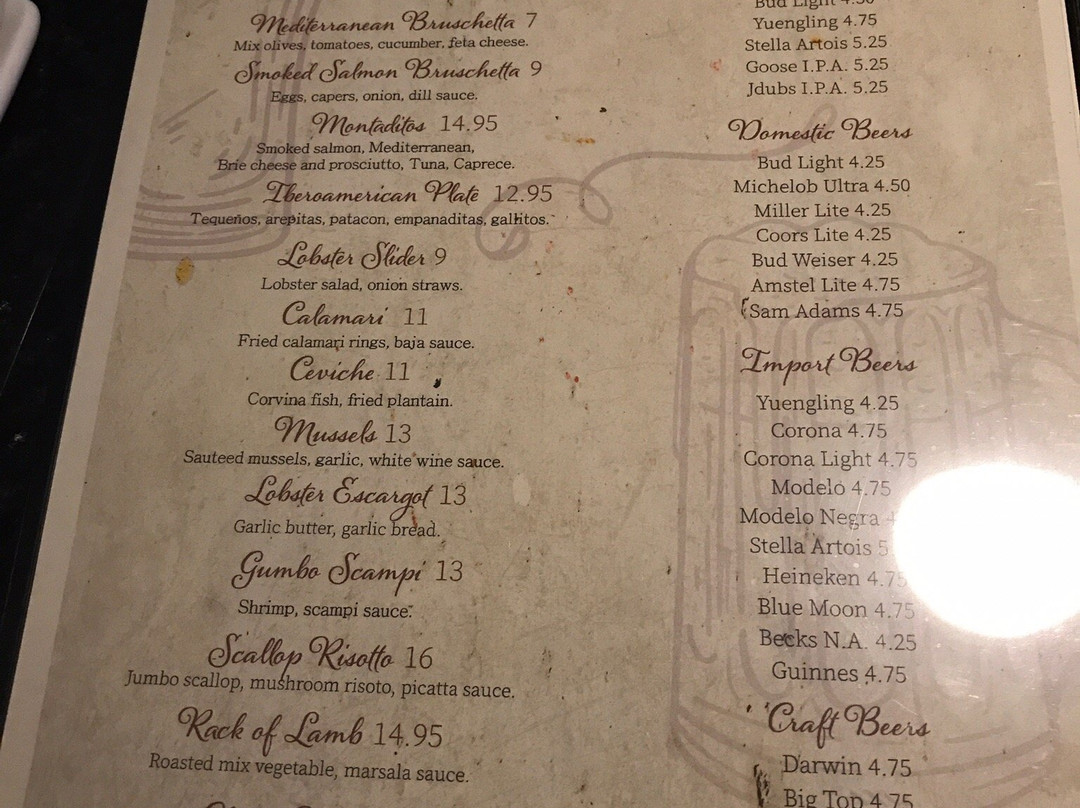 Mediterranean Bruschetta 7
Mix olives, tomatoes, cucumber, feta cheese.
Smoked Salmon Bruschetta 9
Eggs, capers, onion, dill sauce.
Montaditos 14.95
Smoked salmon, Mediterranean,
Brie cheese and prosciutto, Tuna, Caprece.
Iberoamerican Plate 12.95
Tequeños, arepitas, patacon, empanaditas, gallitos.
Lobster Slider 9
Lobster salad, onion straws.
Calamari 11
Fried calamari rings, baja sauce.
Ceviche 11
Corvina fish, fried plantain.
Mussels 13
Sauteed mussels, garlic, white wine sauce.
Lobster Escargot 13
Garlic butter, garlic bread.
Gumbo Scampi 13
Shrimp, scampi sauce.
Scallop Risotto 16
Jumbo scallop, mushroom risoto, picatta sauce.
Rack of Lamb 14.95
Roasted mix vegetable, marsala sauce.
Bud Light 4.50
Yuengling 4.75
Stella Artois 5.25
Goose I.P.A. 5.25
Jdubs I.P.A. 5.25
Domestic Beers
Bud Light 4.25
Michelob Ultra 4.50
Miller Lite 4.25
Coors Lite 4.25
Bud Weiser 4.25
Amstel Lite 4.75
Sam Adams 4.75
Import Beers
Yuengling 4.25
Corona 4.75
Corona Light 4.75
Modelo 4.75
Modelo Negra
Stella Artois
Heineken 4.75
Blue Moon 4.75
Becks N.A. 4.25
Guinnes 4.75
Craft Beers
Darwin 4.75
Big Top 4.75